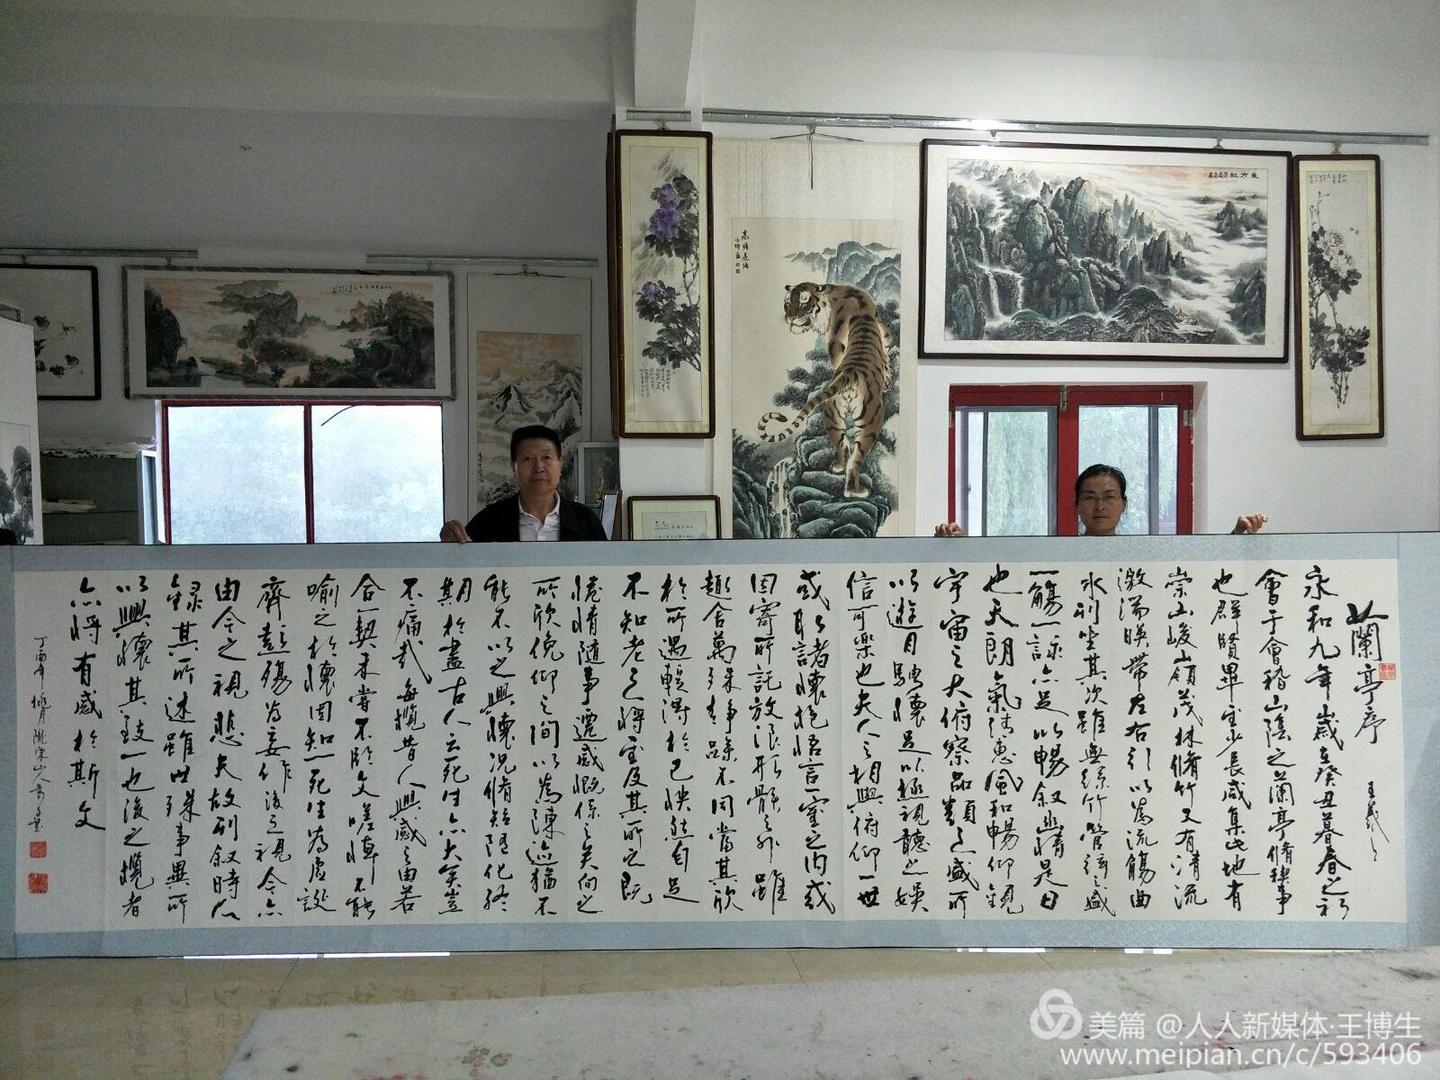 蘭亭序 王羲之
永和九年歲在癸丑暮春之初
會于會稽山陰之蘭亭脩稧事
也群賢畢至少長咸集此地有
崇山峻嶺茂林脩竹又有清流
激湍暎帶左右引以為流觴曲
水列坐其次雖無絲竹管弦之盛
一觴一詠亦足以暢叙幽情是日
也天朗氣清惠風和暢仰觀
宇宙之大俯察品類之盛所
以遊目騁懷足以極視聽之娛
信可樂也夫人之相與俯仰一世
或取諸懷抱悟言一室之内或
因寄所託放浪形骸之外雖
趣舍萬殊静躁不同當其欣
於所遇輒得於己怏然自足
不知老之將至及其所之既
惓情隨事遷感慨係之矣向之
所欣俛仰之間以為陳迹猶不
能不以之興懷況脩短隨化終
期於盡古人云死生亦大矣豈
不痛哉每攬昔人興感之由若
合一契未嘗不臨文嗟悼不能
喻之於懷固知一死生為虛誕
齊彭殤為妄作後之視今亦
由今之視悲夫故列叙時人
錄其所述雖世殊事異所
以興懷其致一也後之攬者
亦將有感於斯文
丁酉年
東方紅
美篇 @人人新媒体·王博生
www.meipian.cn/c/593406